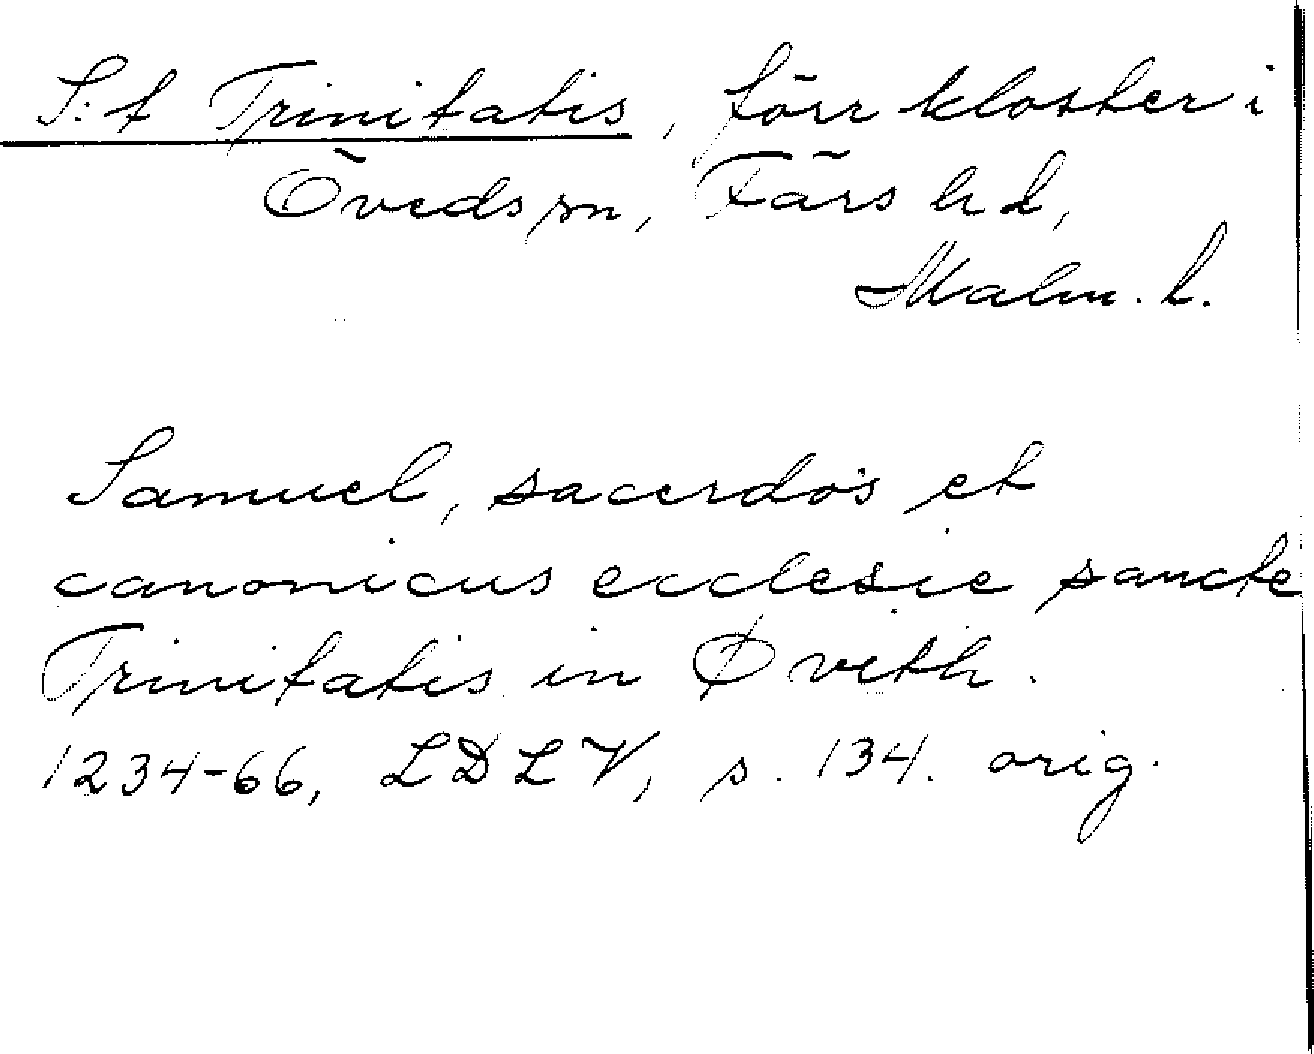 S:t Trinitatis, förr kloster i
Öveds sn, Färs hd,
Malm. l.
Samuel, sacerdos et
canonicus ecclesie sancte
Trinitatis in Øvith.
1234-66, LDLV, s. 134. orig.